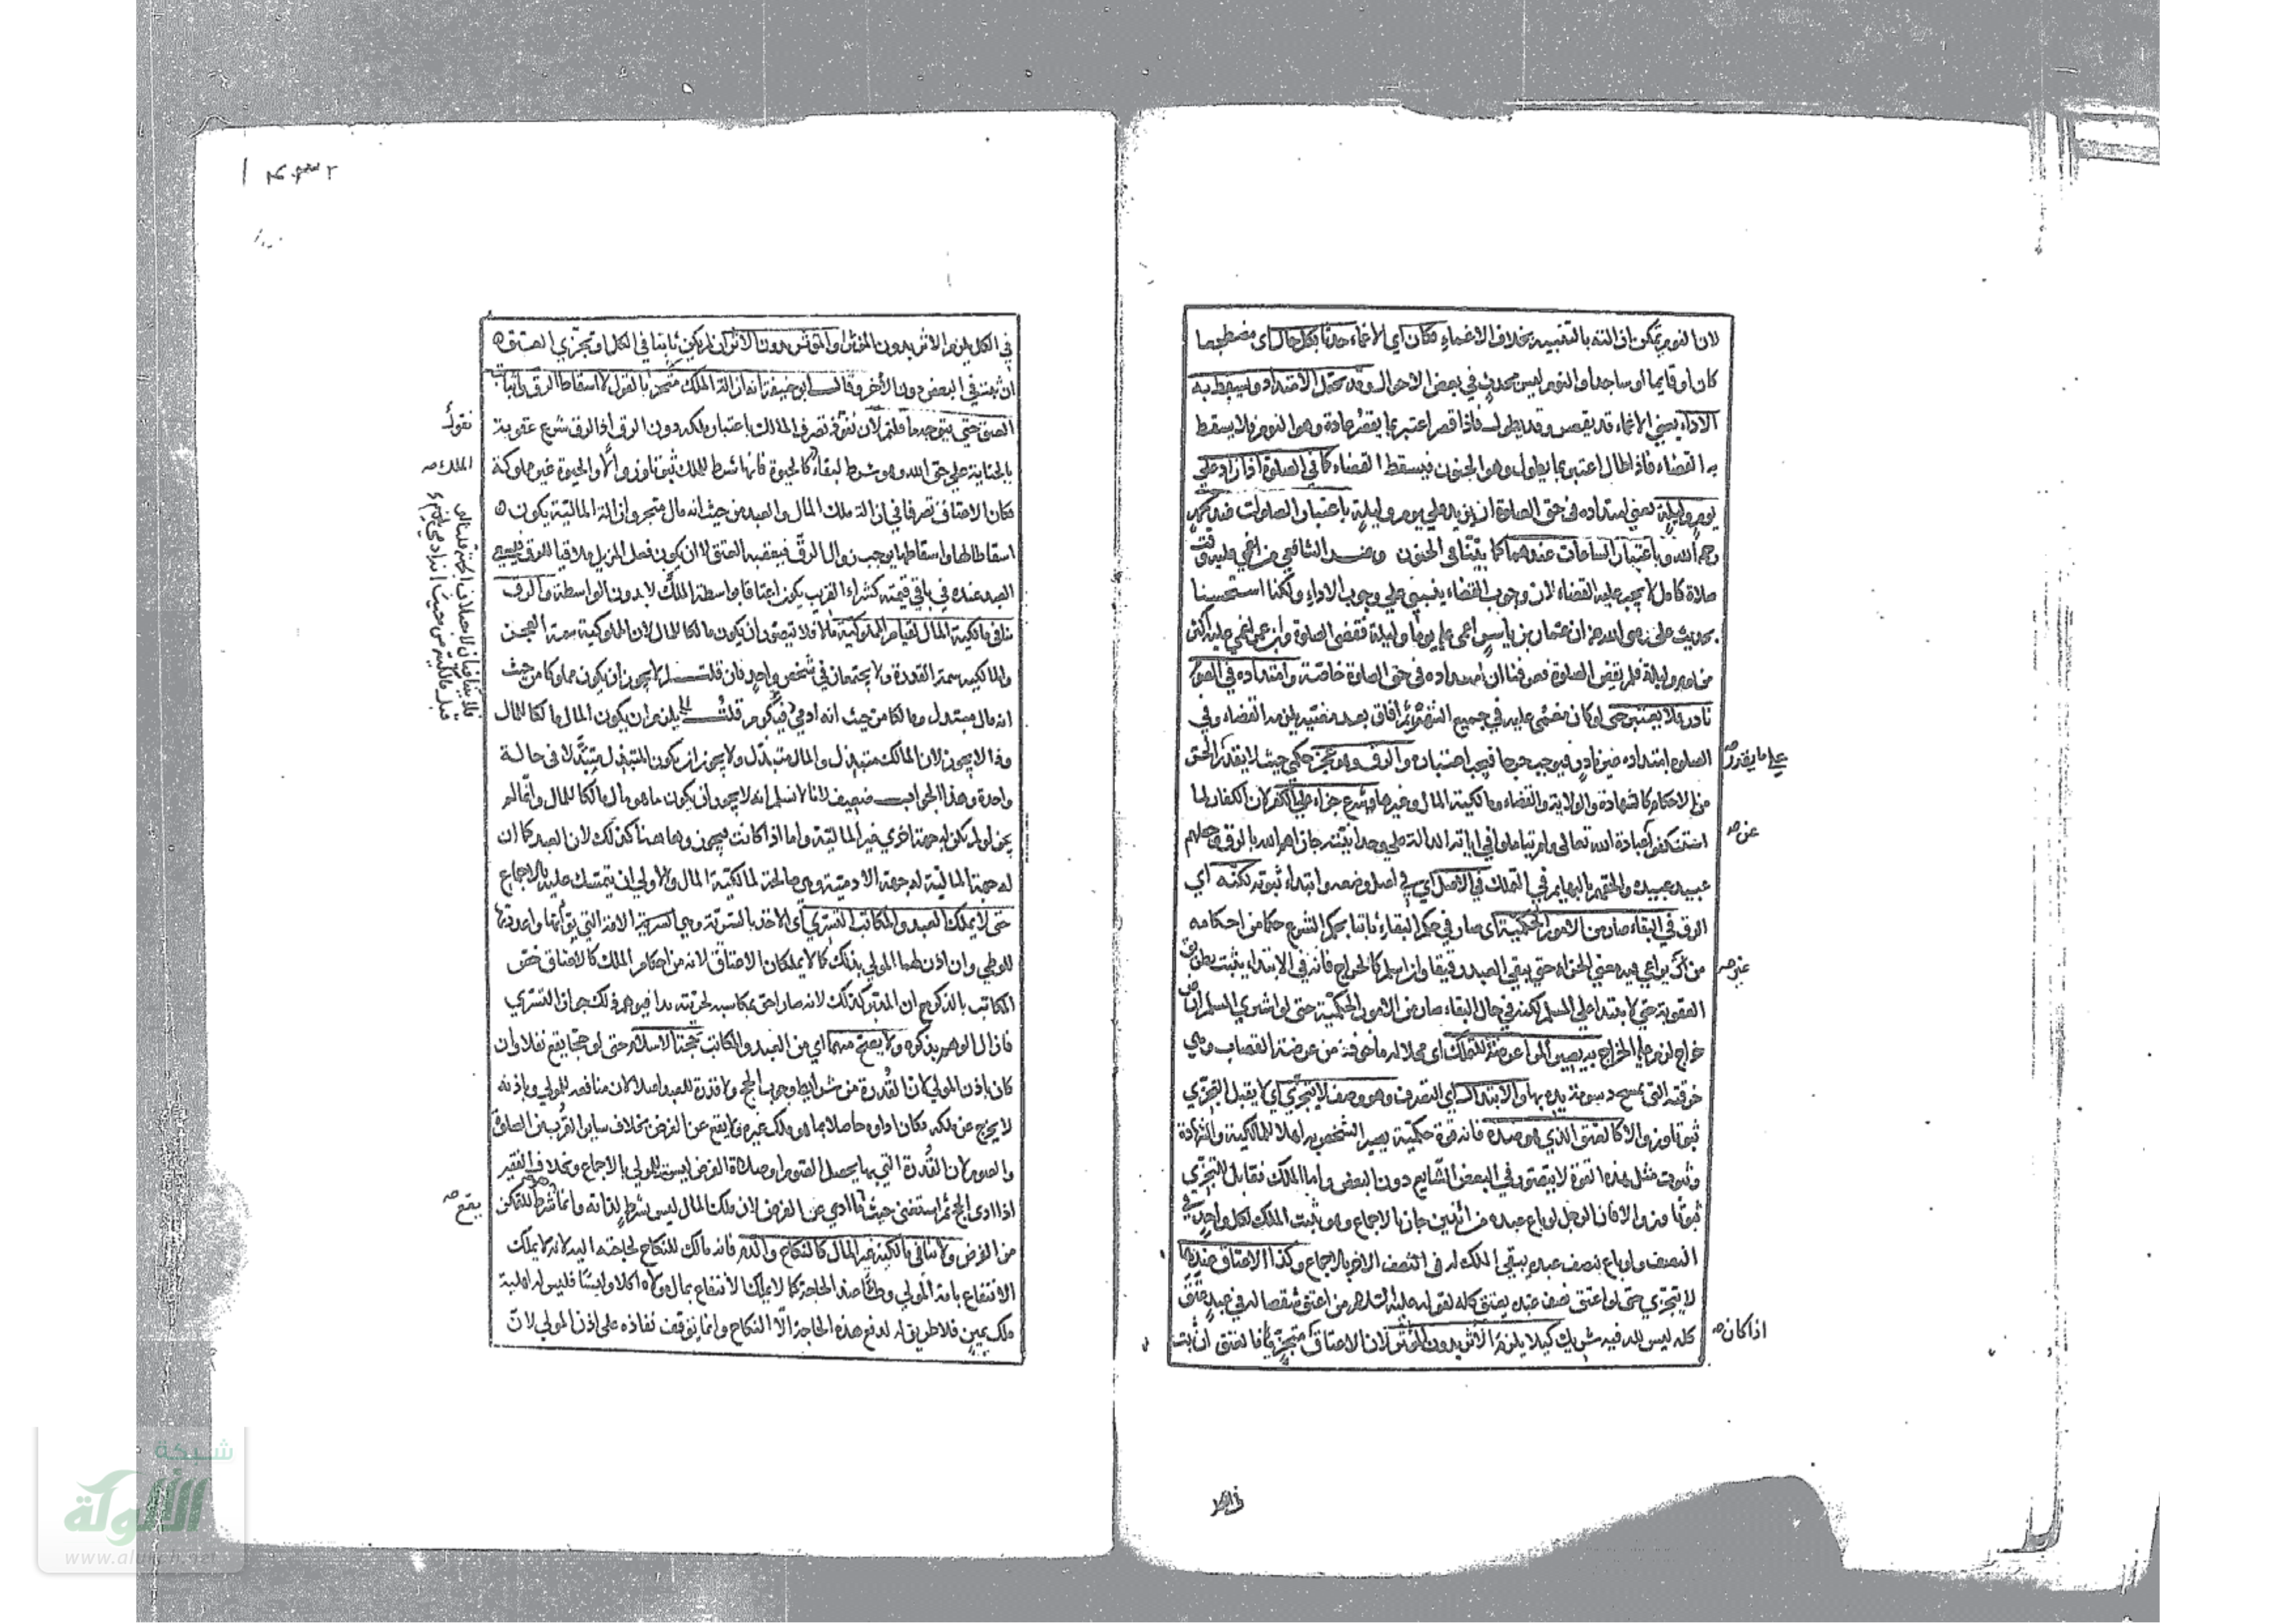 لان النوم يمكن ازالته بالتنبيه بخلاف الاغماء فكان اي الاغماء حدثا بكل حال اى مضطجعا
كان او قايما او ساجدا والنوم ليس بحدث في بعض الاحوال وقد يحتمل الامتداد ويسقط به
الاداء يعني الاغماء قد يقصر وقد يطول فاذا قصر اعتبر بما يقصر عادة وهو النوم فلا يسقط
به القضاء فاذا طال اعتبر بما يطول وهو الجنون فيسقط القضاء كما في الصلوة اذا زاد على
يوم وليلة يعني امتداده في حق الصلوة ان يزيد على يوم وليلة باعتبار الصلوات عند محمد
رحمه الله وباعتبار الساعات عندهما كما بينا في الجنون وعند الشافعي من اغمي عليه وقت
صلاة كامل لا يجب عليه القضاء لان وجوب القضاء يبتني على وجوب الاداء ولكنا استحسنا
بحديث علي رضي الله عنه ان عمار بن ياسر اغمي عليه يوما وليلة فقضى الصلوة وابن عمر اغمي عليه اكثر
من يوم وليلة فلم يقض الصلوة فعرفنا ان امتداده في حق الصلوة خاصة وامتداده في الصوم
نادر فلا يعتبر حتى لو كان مغمى عليه في جميع الشهر ثم افاق بعد مضيه يلزمه القضاء وفي
الصلوة امتداده غير نادر فيوجب حرجا فيجب اعتباره والرق وهو عجز حكمي حيث لا يقدر الحق
على ما يقدر
من الاحكام كالشهادة والولاية والقضاء ومالكية المال وغيرها شرع جزاء على الكفر لان الكفار لما
استنكفوا عبادة الله تعالى ولم يتاملوا في اياته الدالة على وحدانيته جازاهم الله بالرق وجعلهم
عن
عبيد عبيده والحقهم بالبهايم في التملك في الاصل اي في اصل وضعه وابتداء ثبوته لكنه اي
الرق في البقاء صار من الامور الحكمية اى صار في حكم البقاء ثابتا بحكم الشرع حكما من احكامه
من ان يراعي فيه معنى الجزاء حتى يبقى العبد رقيقا وان اسلم كالخراج فانه في الابتداء يثبت بطريق
غير
العقوبة حتى لا يبتدا على المسلم لكنه في حال البقاء صار من الامور الحكمية حتى لو اشترى المسلم ارض
خراج لزم عليه الخراج به يصير المرء عرضة للتملك اى محلا له ماخوذة من عرضة القصاب وهي
خرقته التي يمسح دسومة يده بها والابتذال اي التصرف وهو وصف لا يتجزى اي لا يقبل التجزي
ثبوتا وزوالا كالعتق الذي هو ضده فانه قوة حكمية يصير الشخص به اهلا للمالكية والشهادة
وثبوت مثل هذه القوة لا يتصور في البعض الشايع دون البعض واما الملك فقابل للتجزي
ثبوتا وزوالا فان الرجل لو باع عبده من اثنين جاز بالاجماع وهو يثبت الملك لكل واحد في
النصف ولو باع نصف عبده يبقى الملك له في النصف الاخر بالاجماع وكذا الاعتاق عندهما
لا يتجزى حتى لو اعتق نصف عبده يعتق كله لقوله عليه السلام من اعتق شقصا له في عبد عتق
كله ليس لله فيه شريك كيلا يلزم الاثر بدون المؤثر لان الاعتاق متجز فاما لعتق ان ثبت
اذا كان
في الكل يلزم الاثر بدون المؤثر او المؤثر بدون الاثر ان لم يكن ثابتا في الكل او تجزي العتق
ان ثبت في البعض دون الاخر وقال ابو حنيفة انه ازالة الملك متجز بالقول لا اسقاط الرق واثبات
العتق حتى يتوجه ما قلتم لان نفوذ تصرف المالك باعتبار ملكه دون الرق اذ الرق شرع عقوبة
نقول
بالجناية على حق الله وهو شرط لبقاء كالحيوة فانها شرط للملك ثبوتا وزوالا والحيوة غير مملوكة
الملك
فكان الاعتاق تصرفا في ازالة ملك المال والعبد من حيث انه مال متجز وازالة المالية يكون
اسقاطا لها واسقاطها يوجب زوال الرق فيعقبه العتق لا ان يكون فعل المزيل ملاقيا للرق فيسعى
العبد عنده في باقي قيمته كشراء القريب يكون اعتاقا بواسطة الملك لا بدون الواسطة والرق
ينافي مالكية المال لقيام المملوكية مالا فلا يتصور ان يكون مالكا للمال لان المملوكية سمة العجز
والمالكية سمة القدرة ولا يجتمعان في شخص واحد فان قلت لم لا يجوز ان يكون مملوكا من حيث
انه مال مبتذل ومالكا من حيث انه ادمي فيكرم قلت يلزم ان يكون المال مالكا للمال
وذا لا يجوز لان المالك متبذل والمال مبتذل ولا يجوز ان يكون المتبذل مبتذلا في حالة
واحدة وهذا الجواب ضعيف لانا لا نسلم انه لا يجوز ان يكون ما هو مال مالكا للمال وانما لم
يجز لو لم يكن له جهة اخرى غير المالية واما اذا كانت فيجوز وهاهنا كذلك لان العبد كما ان
له جهة المالية له جهة الادمية وهي صالحة لمالكية المال والاولى ان يتمسك عليه بالاجماع
حتى لا يملك العبد والمكاتب التسري اى الاخذ بالسرية وهي السرية الامة التي بواتها واعددتها
للوطي وان اذن لهما المولى بذلك كما لا يملكان الاعتاق لانه من احكام الملك كالاعتاق خص
المكاتب بالذكر مع ان المدبر كذلك لانه صار احق بمكاسبه لحريته يدا فيوهم ذلك جواز التسري
فازال الوهم بذكره ولا يصح منهما اي من العبد والمكاتب حجة الاسلام حتى لو حجا يقع نفلا وان
كان باذن المولى لان القدرة من شرايط وجوب الحج ولا قدرة للعبد اصلا لان منافعه للمولى وباذنه
لا يخرج عن ملكه فكان اداوه حاصلا بما هو ملك غيره فلا يقع عن الفرض بخلاف ساير القرب من الصلوة
والصوم لان القدرة التي بها يحصل الصوم او صلاة الفرض ليست للمولى بالاجماع وبخلاف الفقير
اذا ادى الحج ثم استغنى حيث ما ادي عن الفرض لان ملك المال ليس بشرط لذاته وانما شرط للتمكن
يقع
من الفرض ولا ينافي مالكية غير المال كالنكاح والدم فانه مالك للنكاح لحاجته اليه لانه لا يملك
الانتفاع بامة المولى وطأ عند الحاجة كما لا يملك الانتفاع بمال مولاه اكلا ولبسا فليس له اهلية
ملك يمين فلا طريق له لدفع هذه الحاجة الا النكاح وانما يوقف نفاذه على اذن المولى لان
شبكة
الألوكة
www.alukah.net